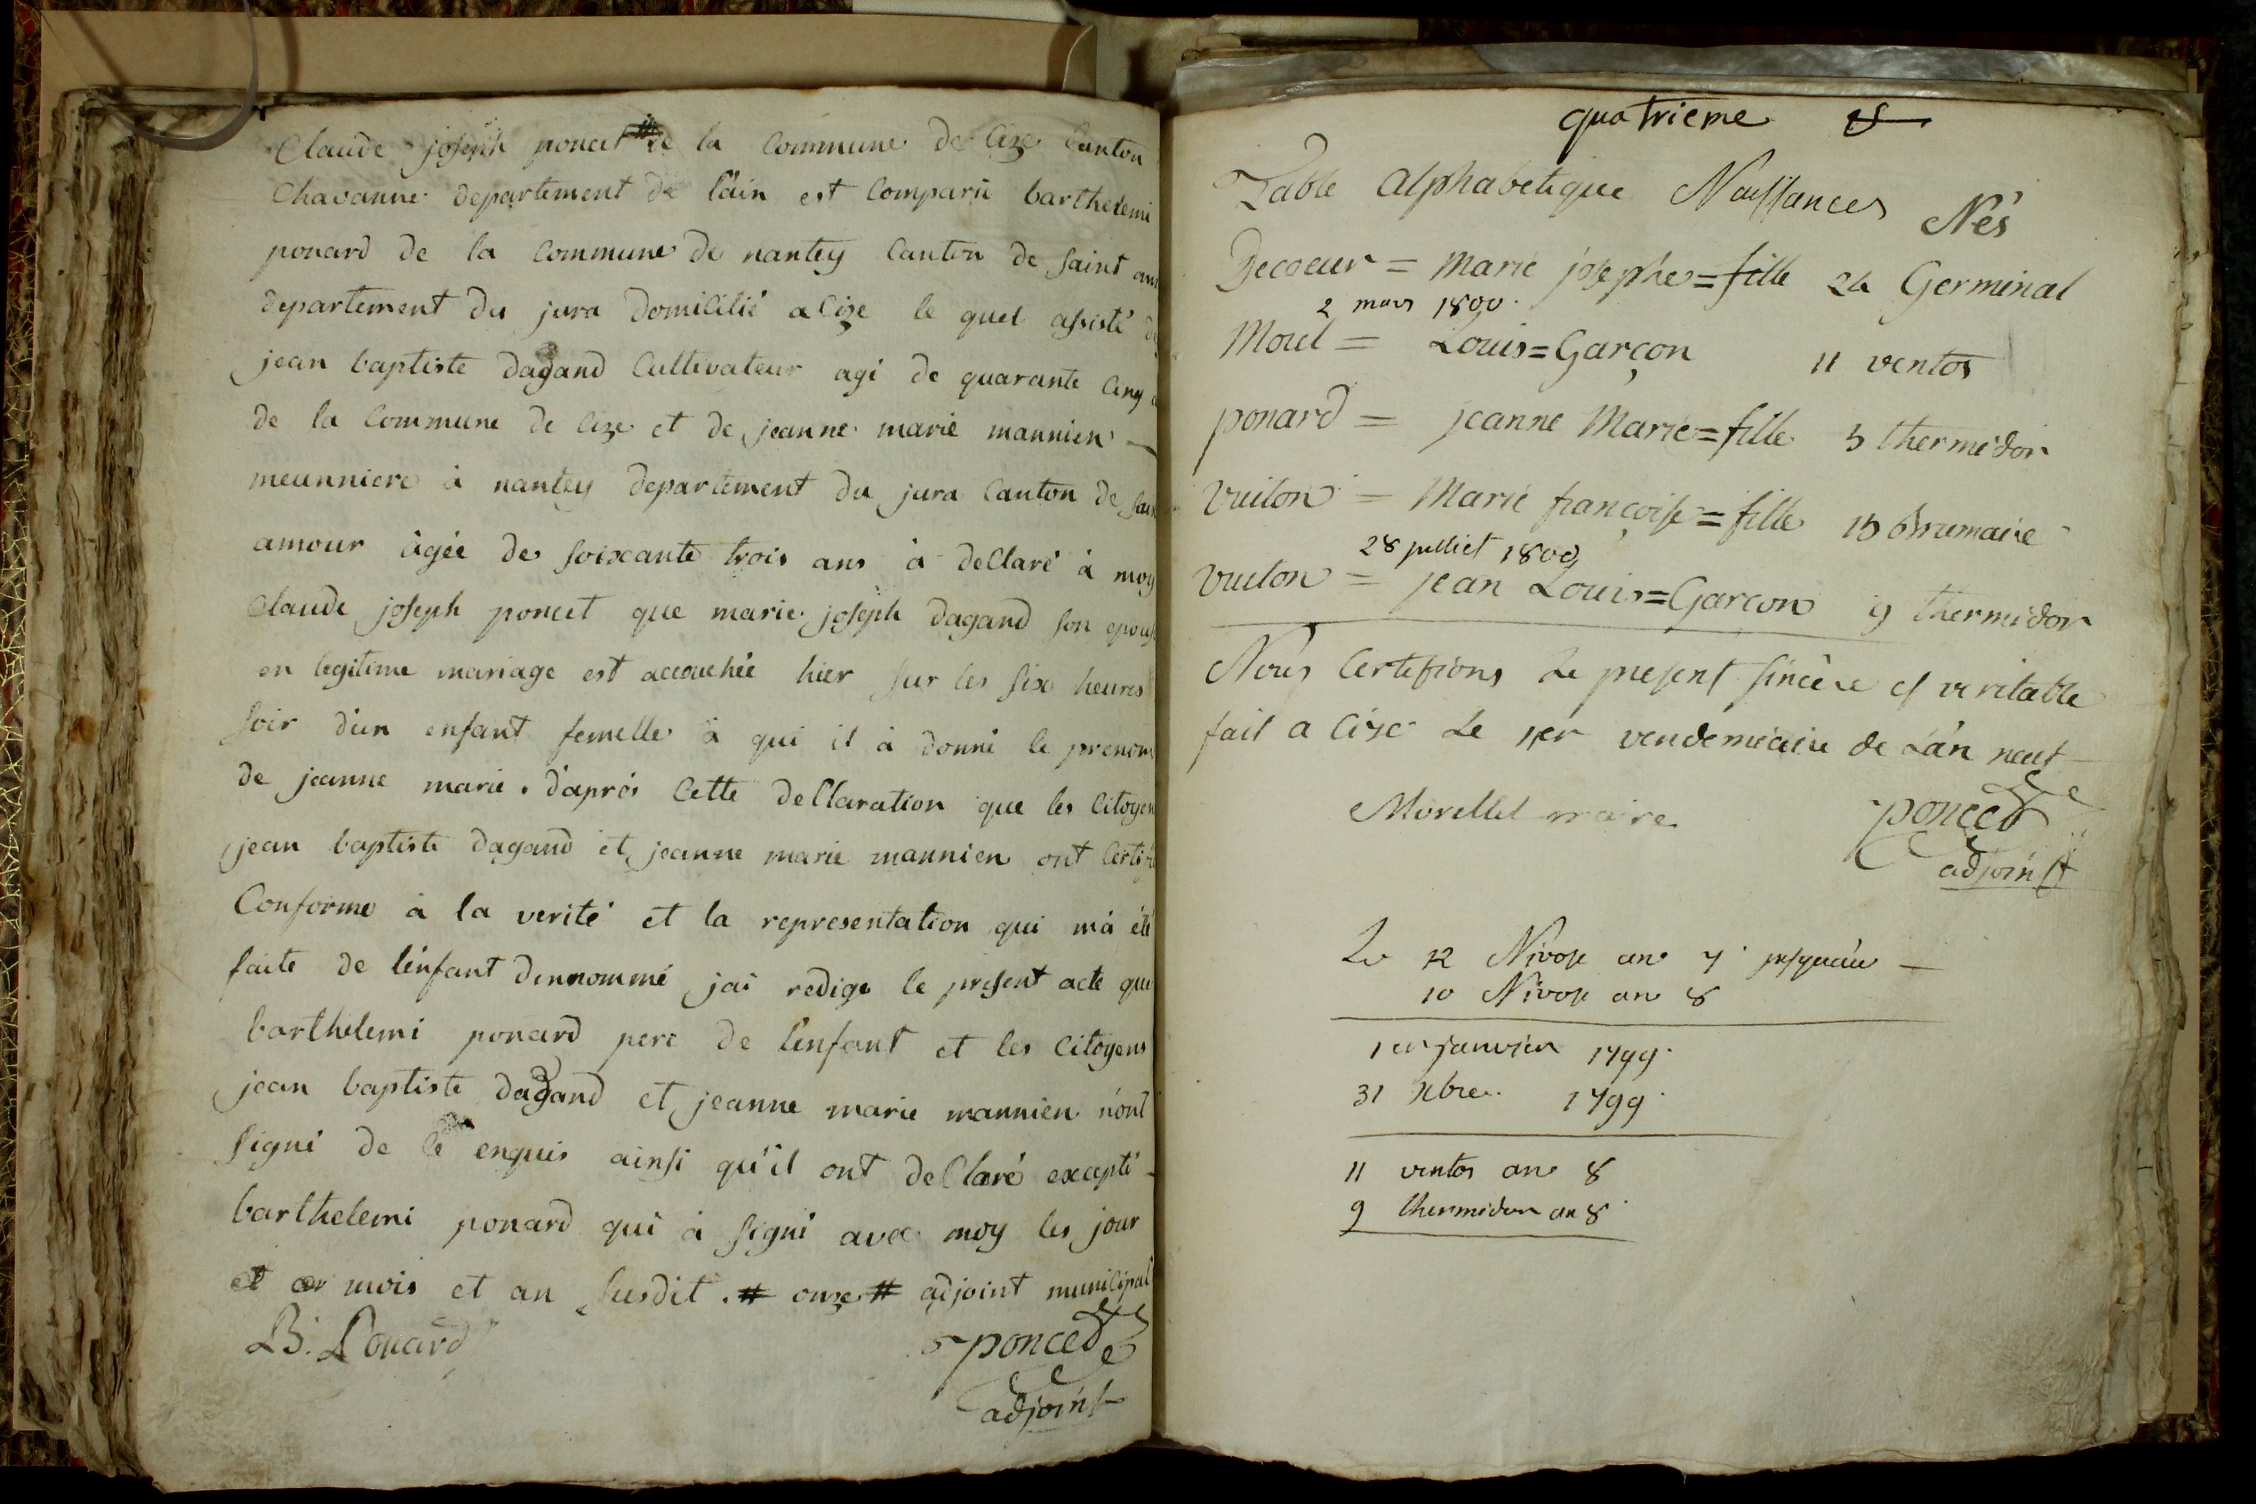 Claude joseph poncet # de la Commune de Cize Canton
Chavanne departement de l'ain est Comparu barthelemi
ponard de la Commune de nantey Canton de saint am
departement du jura domicilié a Cize le quel assisté de
jean baptiste dagand Cultivateur agé de quarante Cinq a
de la Commune de Cize et de jeanne marie mannien
meunniere à nantey departement du jura Canton de sain
amour âgée de soixante trois ans à declaré à moy
Claude joseph poncet que marie joseph dagand son epous
en legitime mariage est accouchée hier sur les six heures
soir d'un enfant femelle à qui il à donné le prenom
de jeanne marie . d'aprés Cette declaration que les Citoyen
jean baptiste dagand et jeanne marie mannien ont Certifi
Conforme à la verité et la representation qui m'à été
faite de l'enfant dennommé j'ai redigé le present acte que
barthelemi ponard pere de l'enfant et les Citoyens
jean baptiste dagand et jeanne marie mannien n'ont
signé de ce enquis ainsi qu'il ont declaré excepté
barthelemi ponard qui à signé avec moy les jour
et mois et an susdit . # onze # adjoint municipal
B. Ponard poncet
adjoint
quatrieme
Table Alphabetique Naissances Nés
Decoeur = Marie josephe = fille 24 Germinal
2 mars 1800
Morel = Louis = Garçon 11 ventos
ponard = jeanne Marie = fille 5 thermidor
Vuiton = Marie françoise = fille 15 Brumaire
28 juillet 1800
vuiton = jean Louis = Garcon 9 thermidor
Nous Certifions Le present sincère et veritable
fait a Cize Le 1er vendemiaire de L'an neuf
Morellet maire poncet
adjoint
Le 12 Nivose an 7 jusqu'au
10 Nivose an 8
1er janvier 1799
31 Xbre 1799
11 ventos an 8
9 thermidor an 8